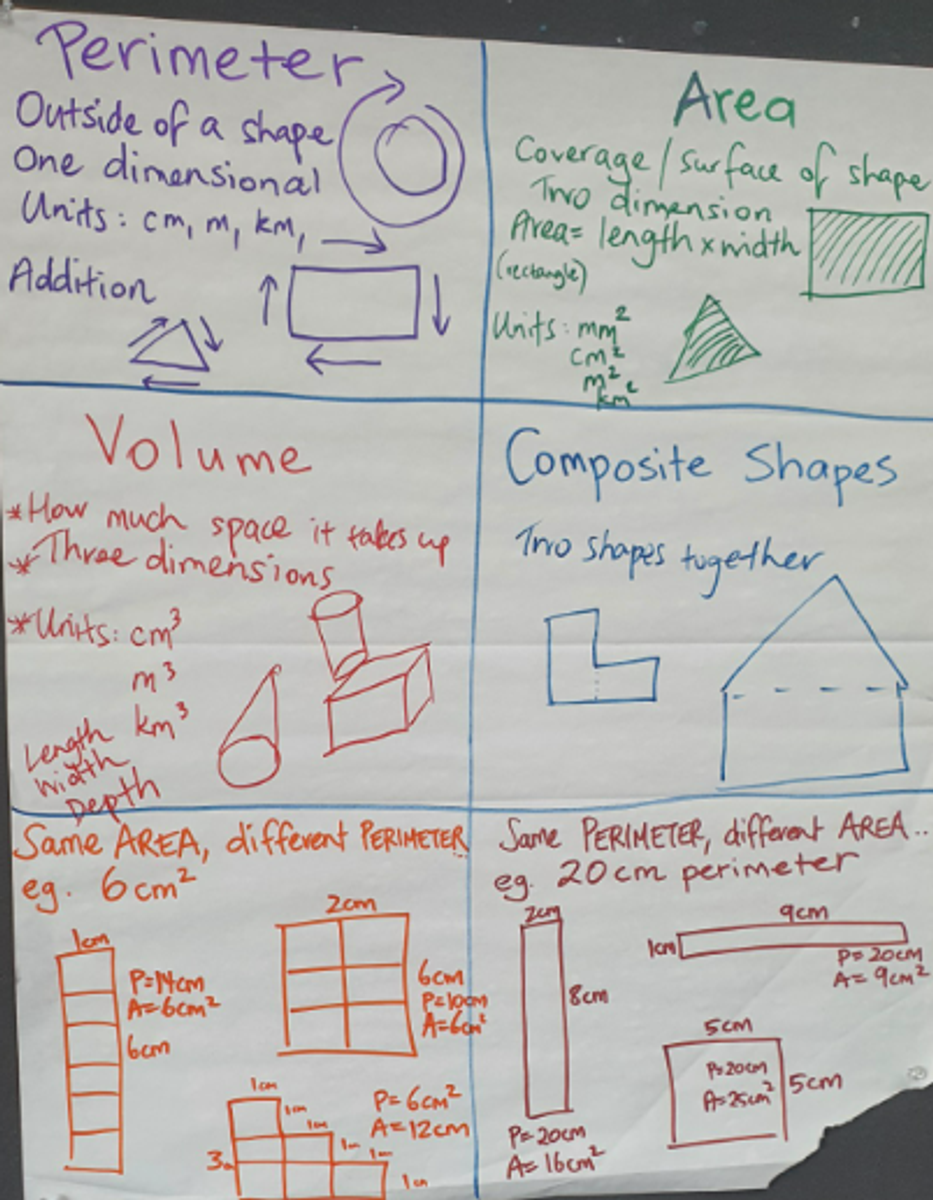 Perimeter
Outside of a shape
One dimensional
Units: cm, m, km,
Addition
Area
Coverage / surface of shape
Two dimension
Area= length x width
(rectangle)
Units: mm²
cm²
m²
km²
Volume
*How much space it takes up
*Three dimensions
*Units: cm³
m³
km³
Length
Width
Depth
Composite Shapes
Two shapes together
Same AREA, different PERIMETER..
eg. 6cm²
1cm
P=14cm
A=6cm²
6cm
2cm
6cm
P=10cm
A=6cm²
1cm
1cm
1cm
1m
1m
1cm
P= 6cm²
A=12cm
Same PERIMETER, different AREA...
eg. 20cm perimeter
2cm
8cm
P=20cm
A=16cm²
9cm
1cm
P=20cm
A=9cm²
5cm
P=20cm
A=25cm²
5cm